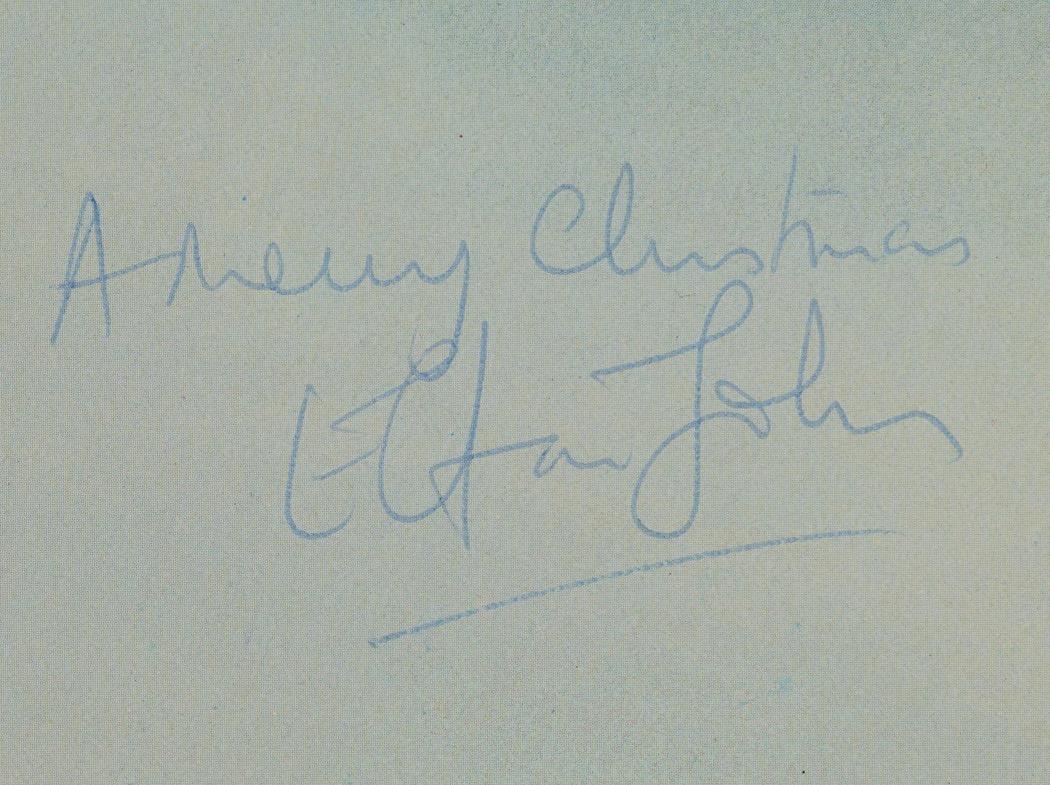 A merry Christmas
Elton John